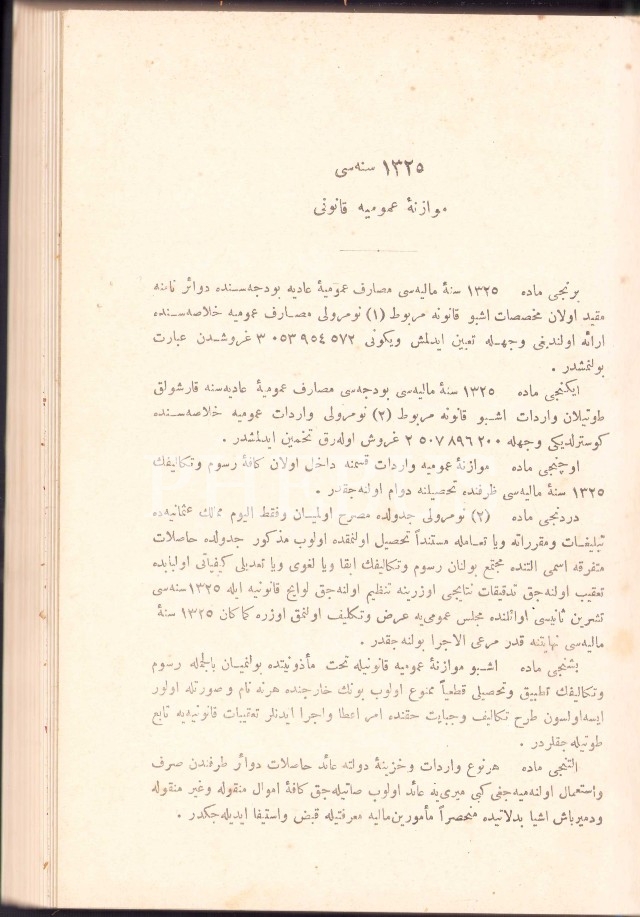 ١٣٢٥ سنه‌سی
موازنهٔ عمومیه قانونی
برنجی ماده ١٣٢٥ سنهٔ مالیه‌سی مصارف عمومیهٔ عادیه بودجه‌سنده دوائر نامنه
مقید اولان مخصصات اشبو قانونه مربوط (١) نومرولی مصارف عمومیه خلاصه‌سنده
ارائه اولندیغی وجهله تعیین ایدلمش ویکونی ٥٧٢ ٩٥٤ ٠٥٣ ٣ غروشدن عبارت
بولنمشدر .
ایکنجی ماده ١٣٢٥ سنهٔ مالیه‌سی بودجه‌سی مصارف عمومیهٔ عادیه‌سنه قارشولق
طوتیلان واردات اشبو قانونه مربوط (٢) نومرولی واردات عمومیه خلاصه‌سنده
کوسترلدیکی وجهله ٢٠٠ ٨٩٦ ٥٠٧ ٢ غروش اوله‌رق تخمین ایدلمشدر .
اوچنجی ماده موازنهٔ عمومیه واردات قسمنه داخل اولان کافهٔ رسوم وتکالیفک
١٣٢٥ سنهٔ مالیه‌سی ظرفنده تحصیلنه دوام اولنه‌جقدر .
دردنجی ماده (٢) نومرولی جدولده مصرح اولمیان وفقط الیوم ممالک عثمانیه‌ده
تبلیغات ومقرراته ویا تعامله مستنداً تحصیل اولنمقده اولوب مذکور جدولده حاصلات
متفرقه اسمی التنده مجتمع بولنان رسوم وتکالیفک ابقا ویا لغوی ویا تعدیلی کیفیاتی اولبابده
تعقیب اولنه‌جق تدقیقات نتایجی اوزرینه تنظیم اولنه‌جق لوایح قانونیه ایله ١٣٢٥ سنه‌سی
تشرین ثانیسی اوائلنده مجلس عمومی‌یه عرض وتکلیف اولنمق اوزره کماکان ١٣٢٥ سنهٔ
مالیه‌سی نهایتنه قدر مرعی الاجرا بولنه‌جقدر .
بشنجی ماده اشبو موازنهٔ عمومیه قانونیله تحت مأذونیتده بولنمیان بالجمله رسوم
وتکالیفک تطبیق وتحصیلی قطعیاً ممنوع اولوب بونک خارجنده هرنه نام و صورتله اولور
ایسه‌اولسون طرح تکالیف وجبایت حقنده امر اعطا واجرا ایدنلر تعقیبات قانونیه‌یه تابع
طوتیله‌جقلردر .
التنجی ماده هرنوع واردات وخزینهٔ دولته عائد حاصلات دوائر طرفندن صرف
واستعمال اولنه‌میه‌جغی کبی میری‌یه عائد اولوب صاتیله‌جق کافهٔ اموال منقوله وغیر منقوله
ودمیرباش اشیا بدلاتیده منحصراً مأمورین‌مالیه معرفتیله قبض واستیفا ایدیله‌جکدر .